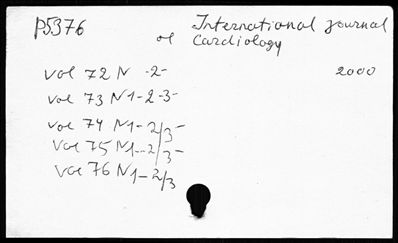 P5376 International journal
of Cardiology
vol 72 N -2- 2000
vol 73 N1-2-3-
vol 74 N1-2/3-
vol 75 N1--2/3-
vol 76 N1-2/3